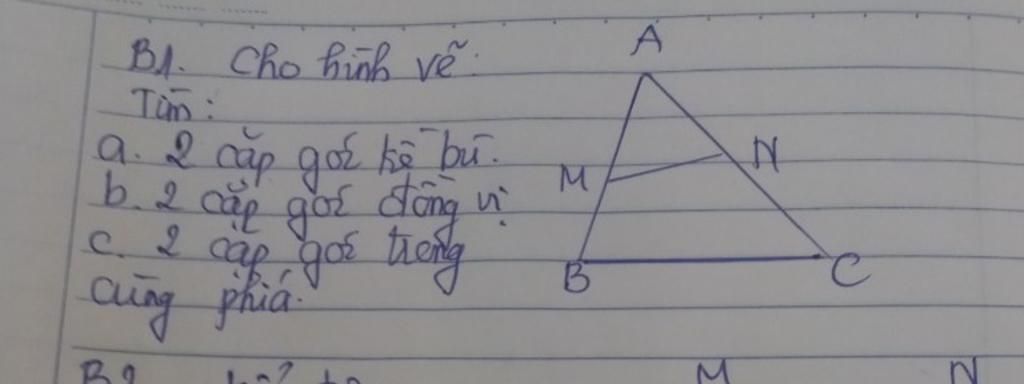 B1. Cho hình vẽ:
Tìm:
a. 2 cặp góc kề bù.
b. 2 cặp góc đồng vị
c. 2 cặp góc trong
cùng phía.
A
M
N
B
C
B2
M
N